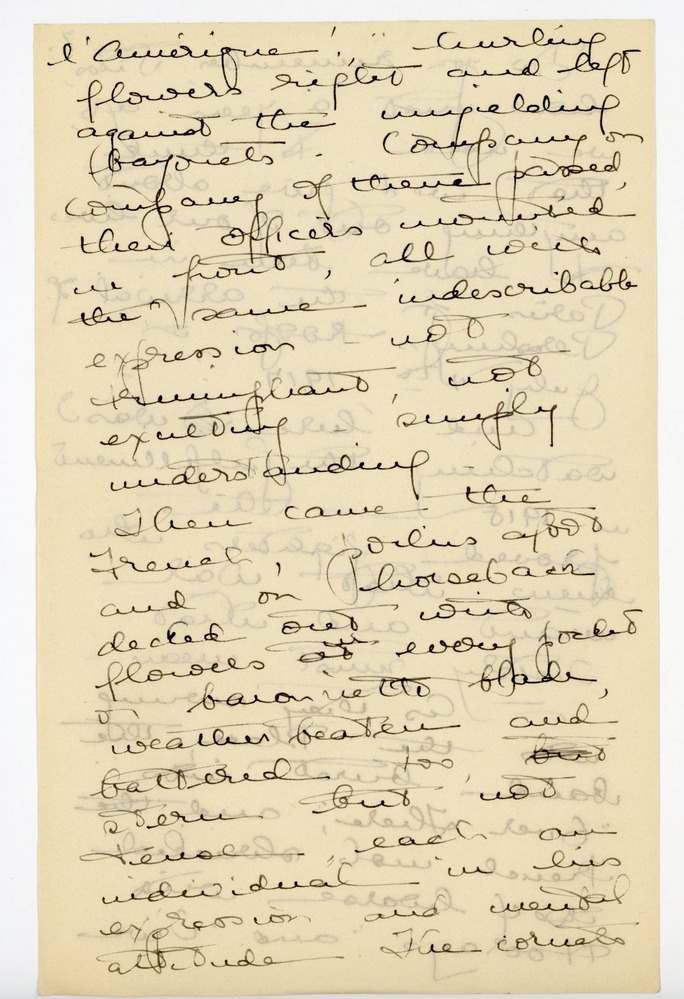 l'Amérique!" hurling
flowers right and left
against the unyielding
bayonets. Company on
company of them passed,
their officers mounted
in front, all with
the same indescribable
expression - not
triumphant, not
exulting - simply
understanding -
Then came the
French, poilus afoot
and on horseback
decked out with
flowers in every pocket
or baionnette blade,
weather beaten and
battered too
stern but not
tense, each an
individual in his
expression and mental
attitude. The cornets